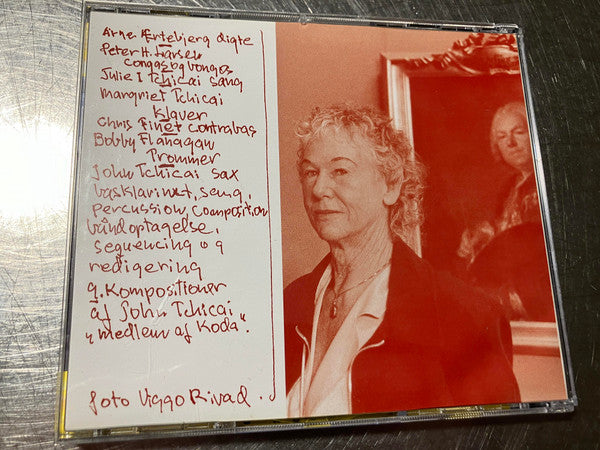 Arne Ærtebjerg digte
Peter H. Larsen
congas og bongos
Julie I Tchicai sang
Margriet Tchicai
Klaver
Chris Finet contrabas
Bobby Flanagan
Trommer
John Tchicai sax
basklarinet, sang,
percussion, composition
båndoptagelse,
sequencing og
redigering
9. Kompositioner
af John Tchicai
"medlem af Koda".
foto Viggo Rivad.